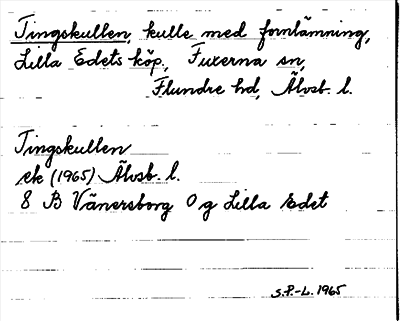 Tingskullen, kulle med fornlämning,
Lilla Edets köp, Fuxerna sn,
Flundre hd, Älvsb. l.
Tingskullen
ek (1965) Älvsb. l.
8 B Vänersborg 0 g Lilla Edet
S.P.-L. 1965